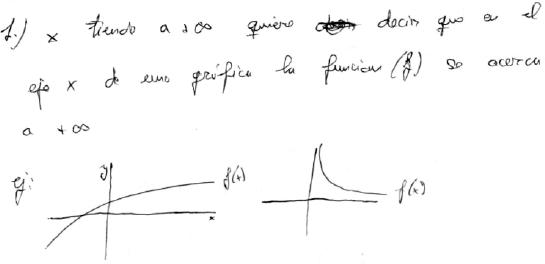 1.) x tiende a +∞ quiere decir que en el
eje x de una gráfica la función (f) se acerca
a +∞
ej: y f(x) f(x)
x